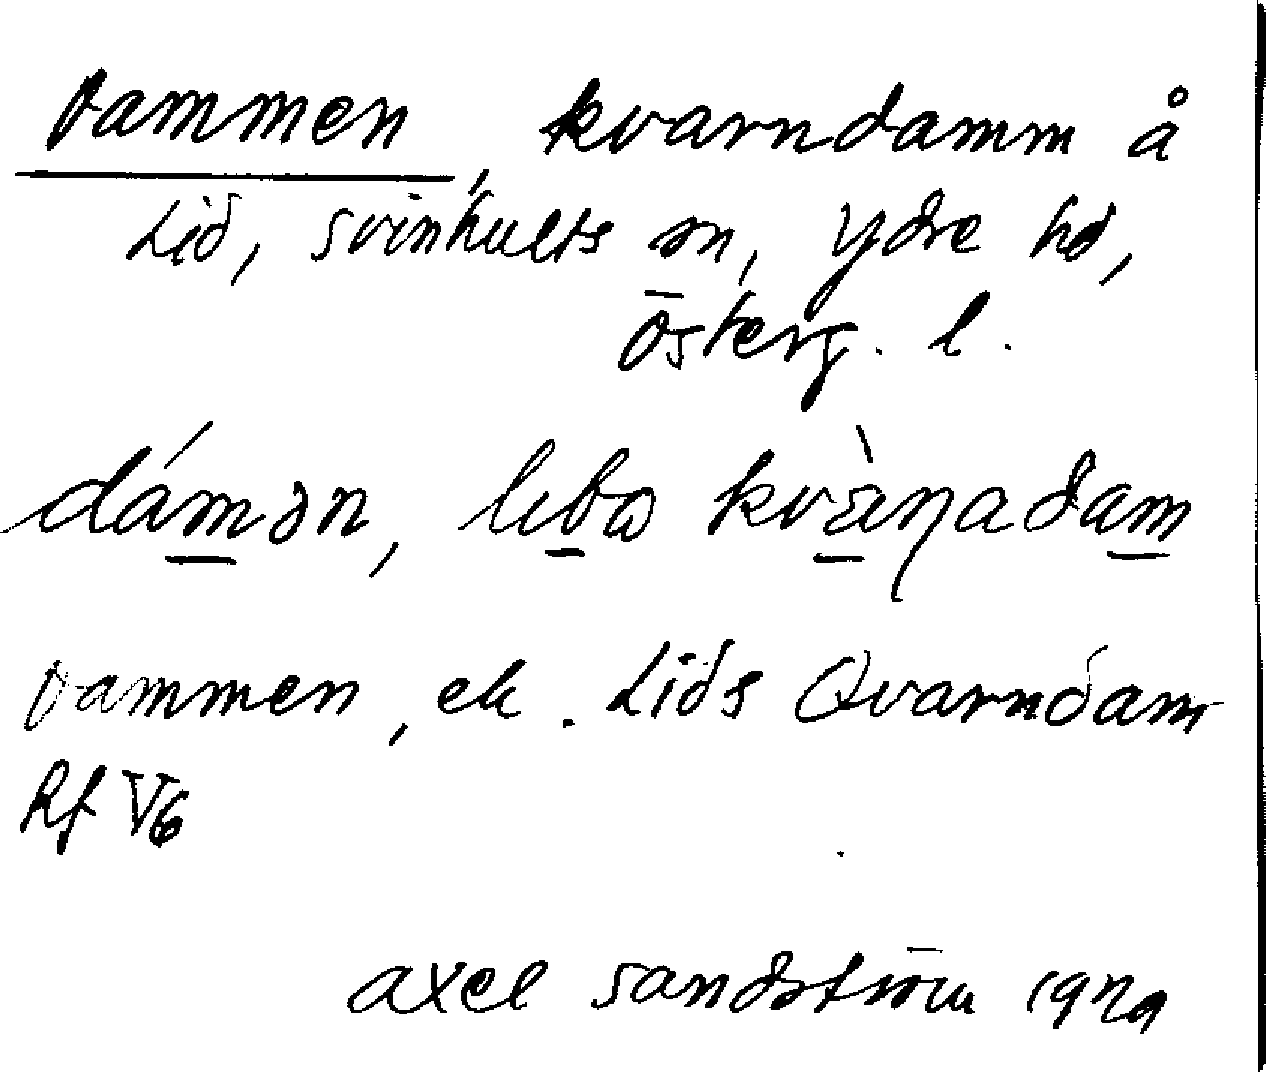 Dammen, kvarndamm å
Lid, Svinhults sn, Ydre hd,
Österg. l.
dámən, kvàṇadam
Dammen, ek. Lids Qvarndam
Rf V6
Axel Sandström 1929